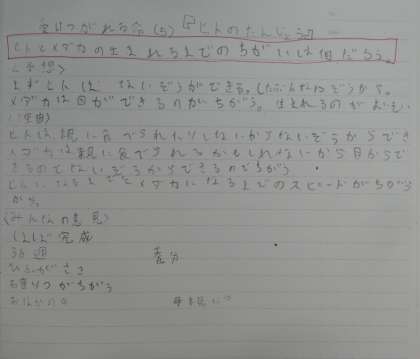 受けつがれる命(5)『ヒトのたんじょう』
ヒトとメダカの生まれるまでのちがいは何だろう。
<予想>
まずヒトは ないぞうができる。(たぶんしんぞうから。
メダカは目ができるのがちがう。生まれるのがおそい
(理由)
ヒトは、親に食べられたりしないからないぞうからでき
メダカは親に食べられるかもしれないから目からで
きるのとないぞうからできるのでちがう
ヒトになるまでとメダカになるまでのスピードがちがう
から。
(みんなの意見)
ほぼ完成
38週 養分
ひふがさき
おなかの中